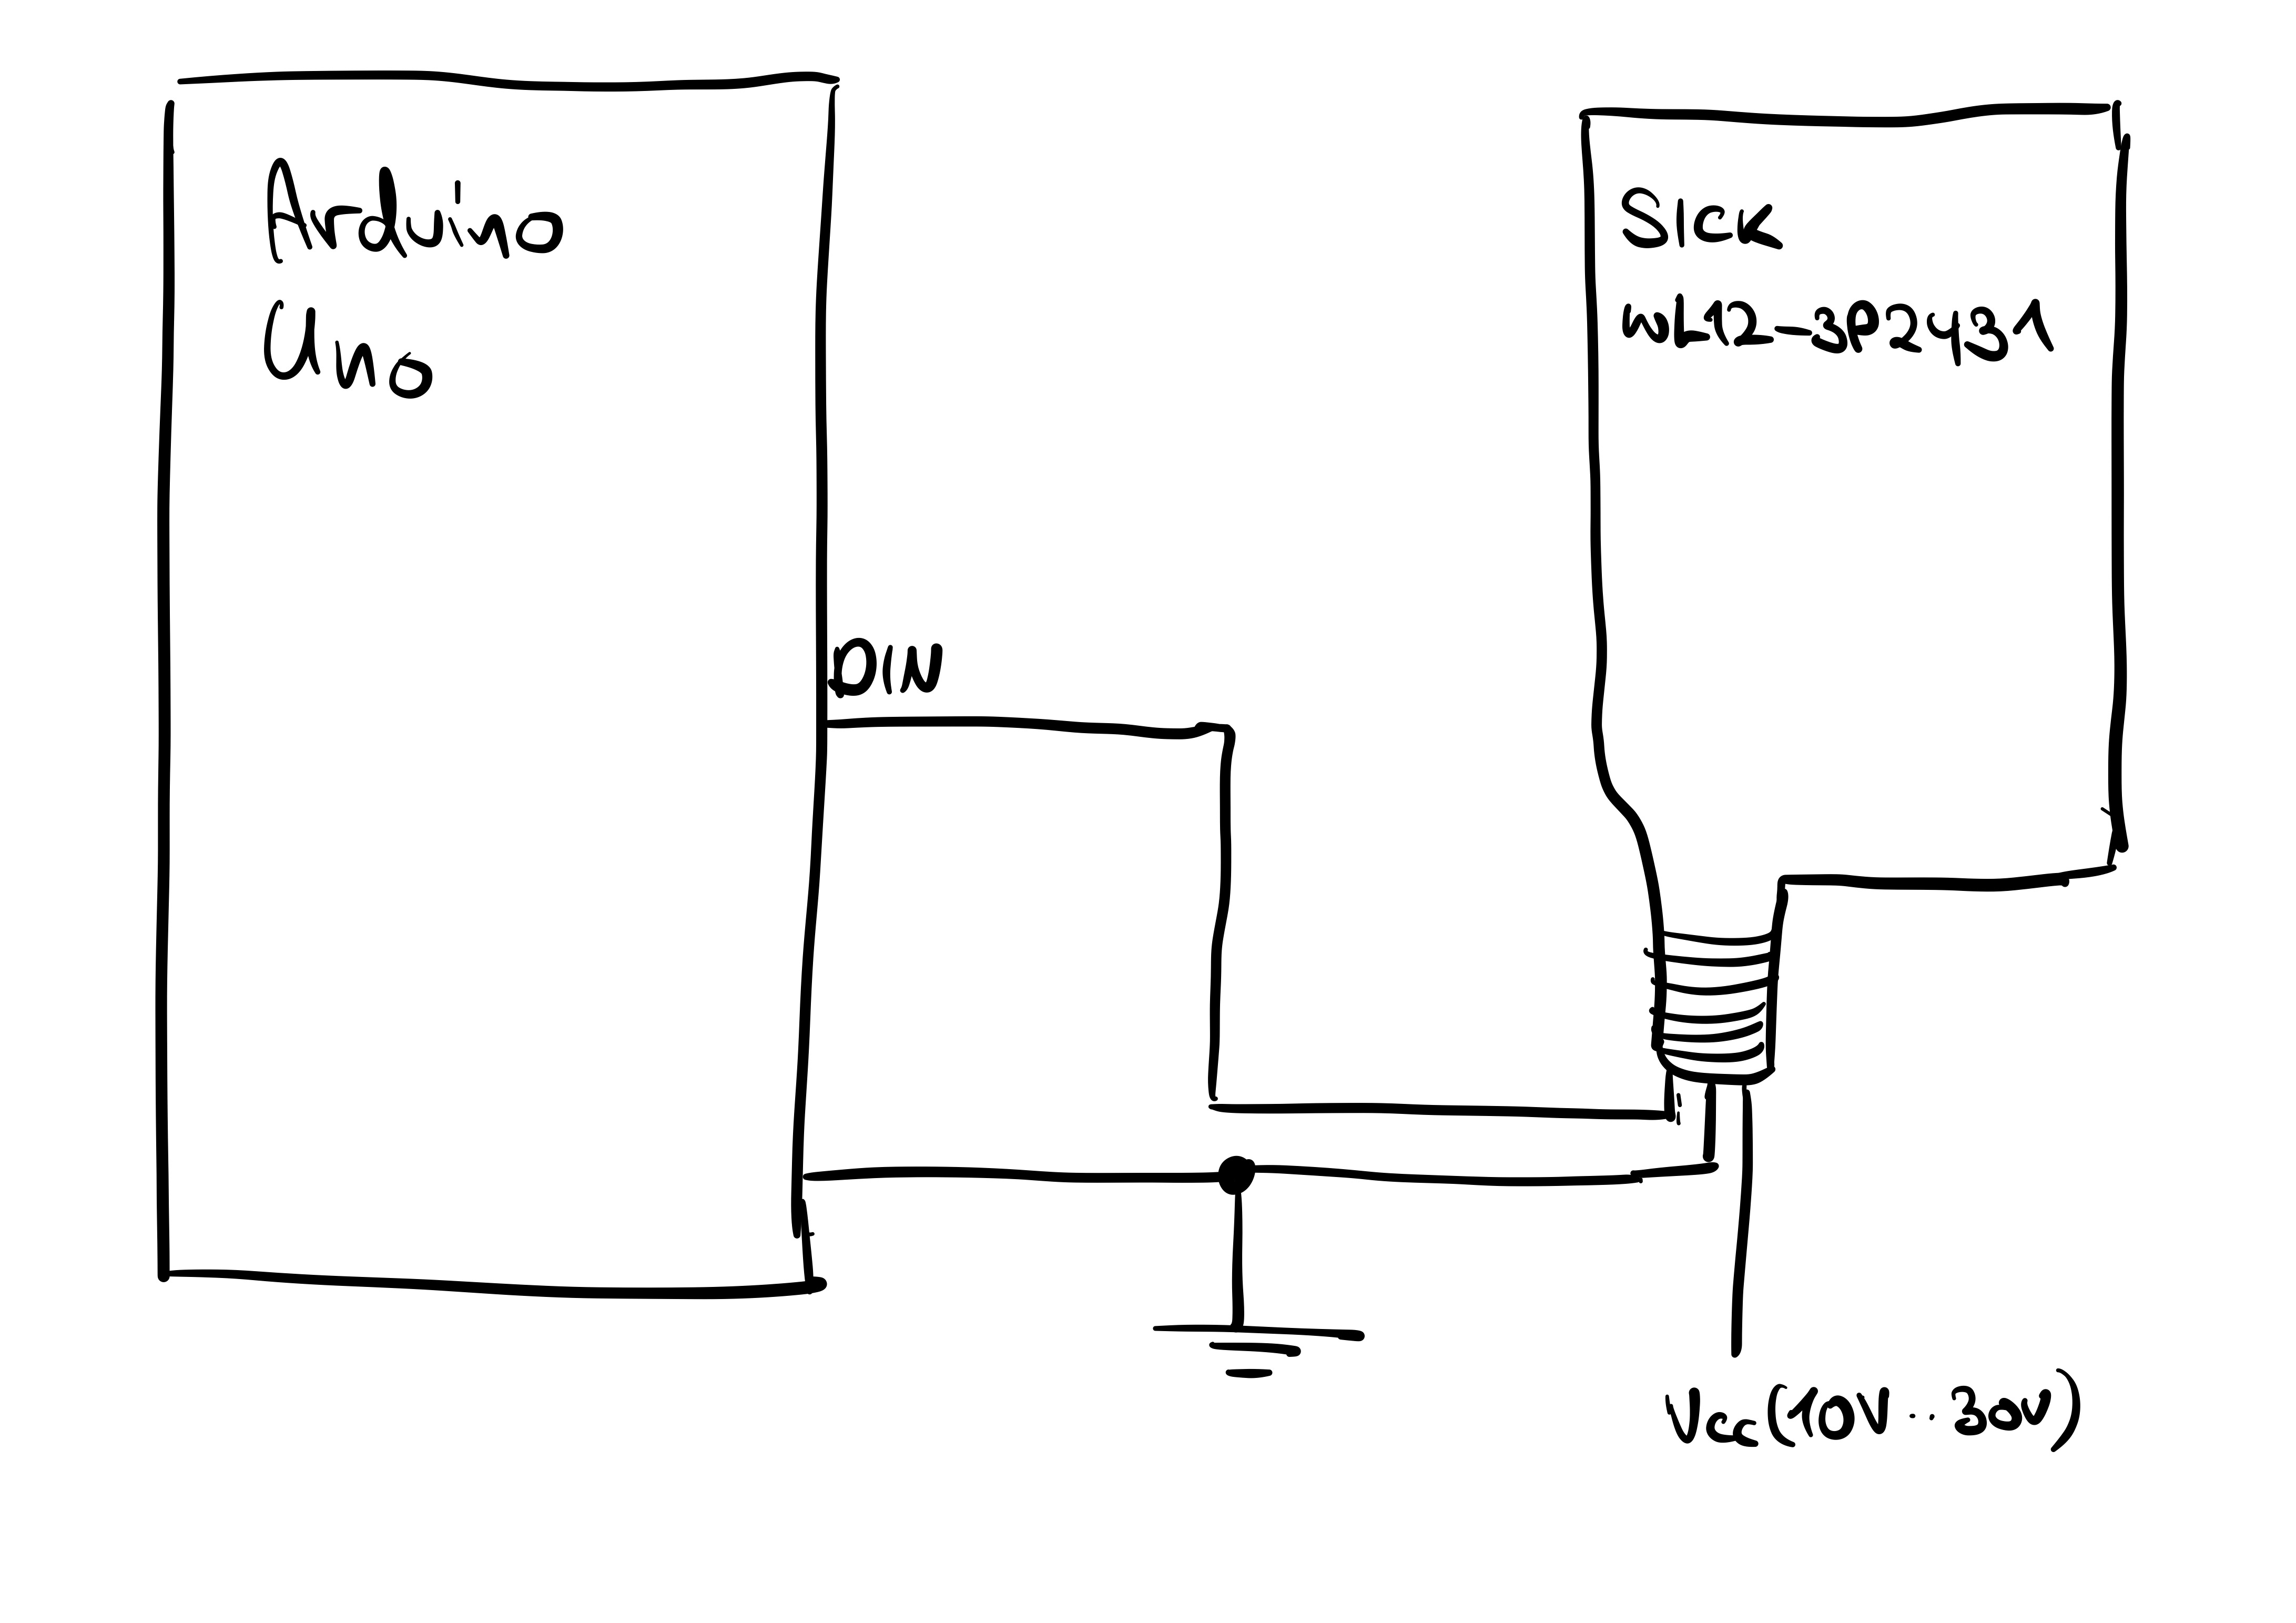 Arduino
Uno
Sick
WL12-3P2431
DIN
Vcc(10V..30V)